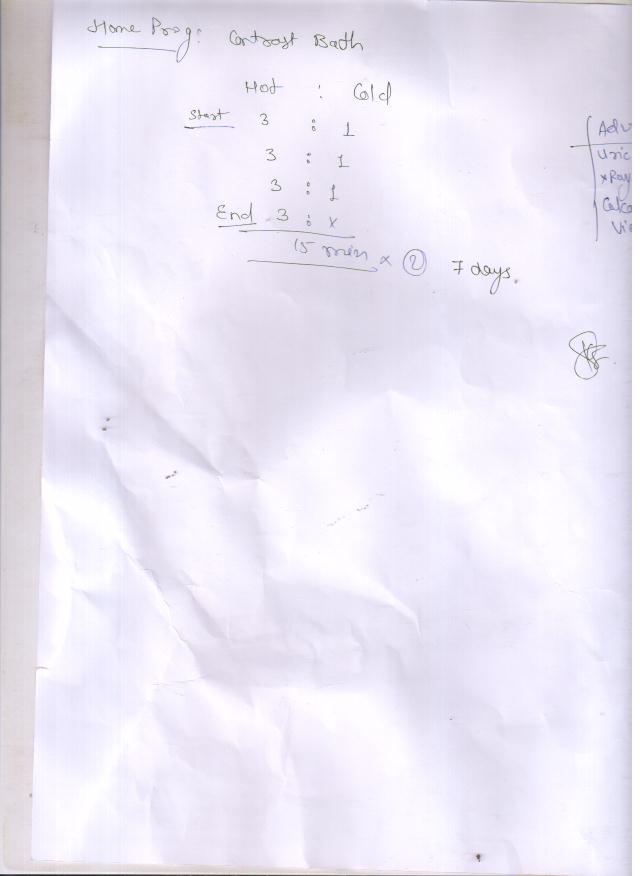 Home Prog: Contrast Bath
Hot : Cold
Start 3 : 1
3 : 1
3 : 1
End 3 : x
15 min x 2 7 days.
Adv
Uric
xRay
Calca
Vi